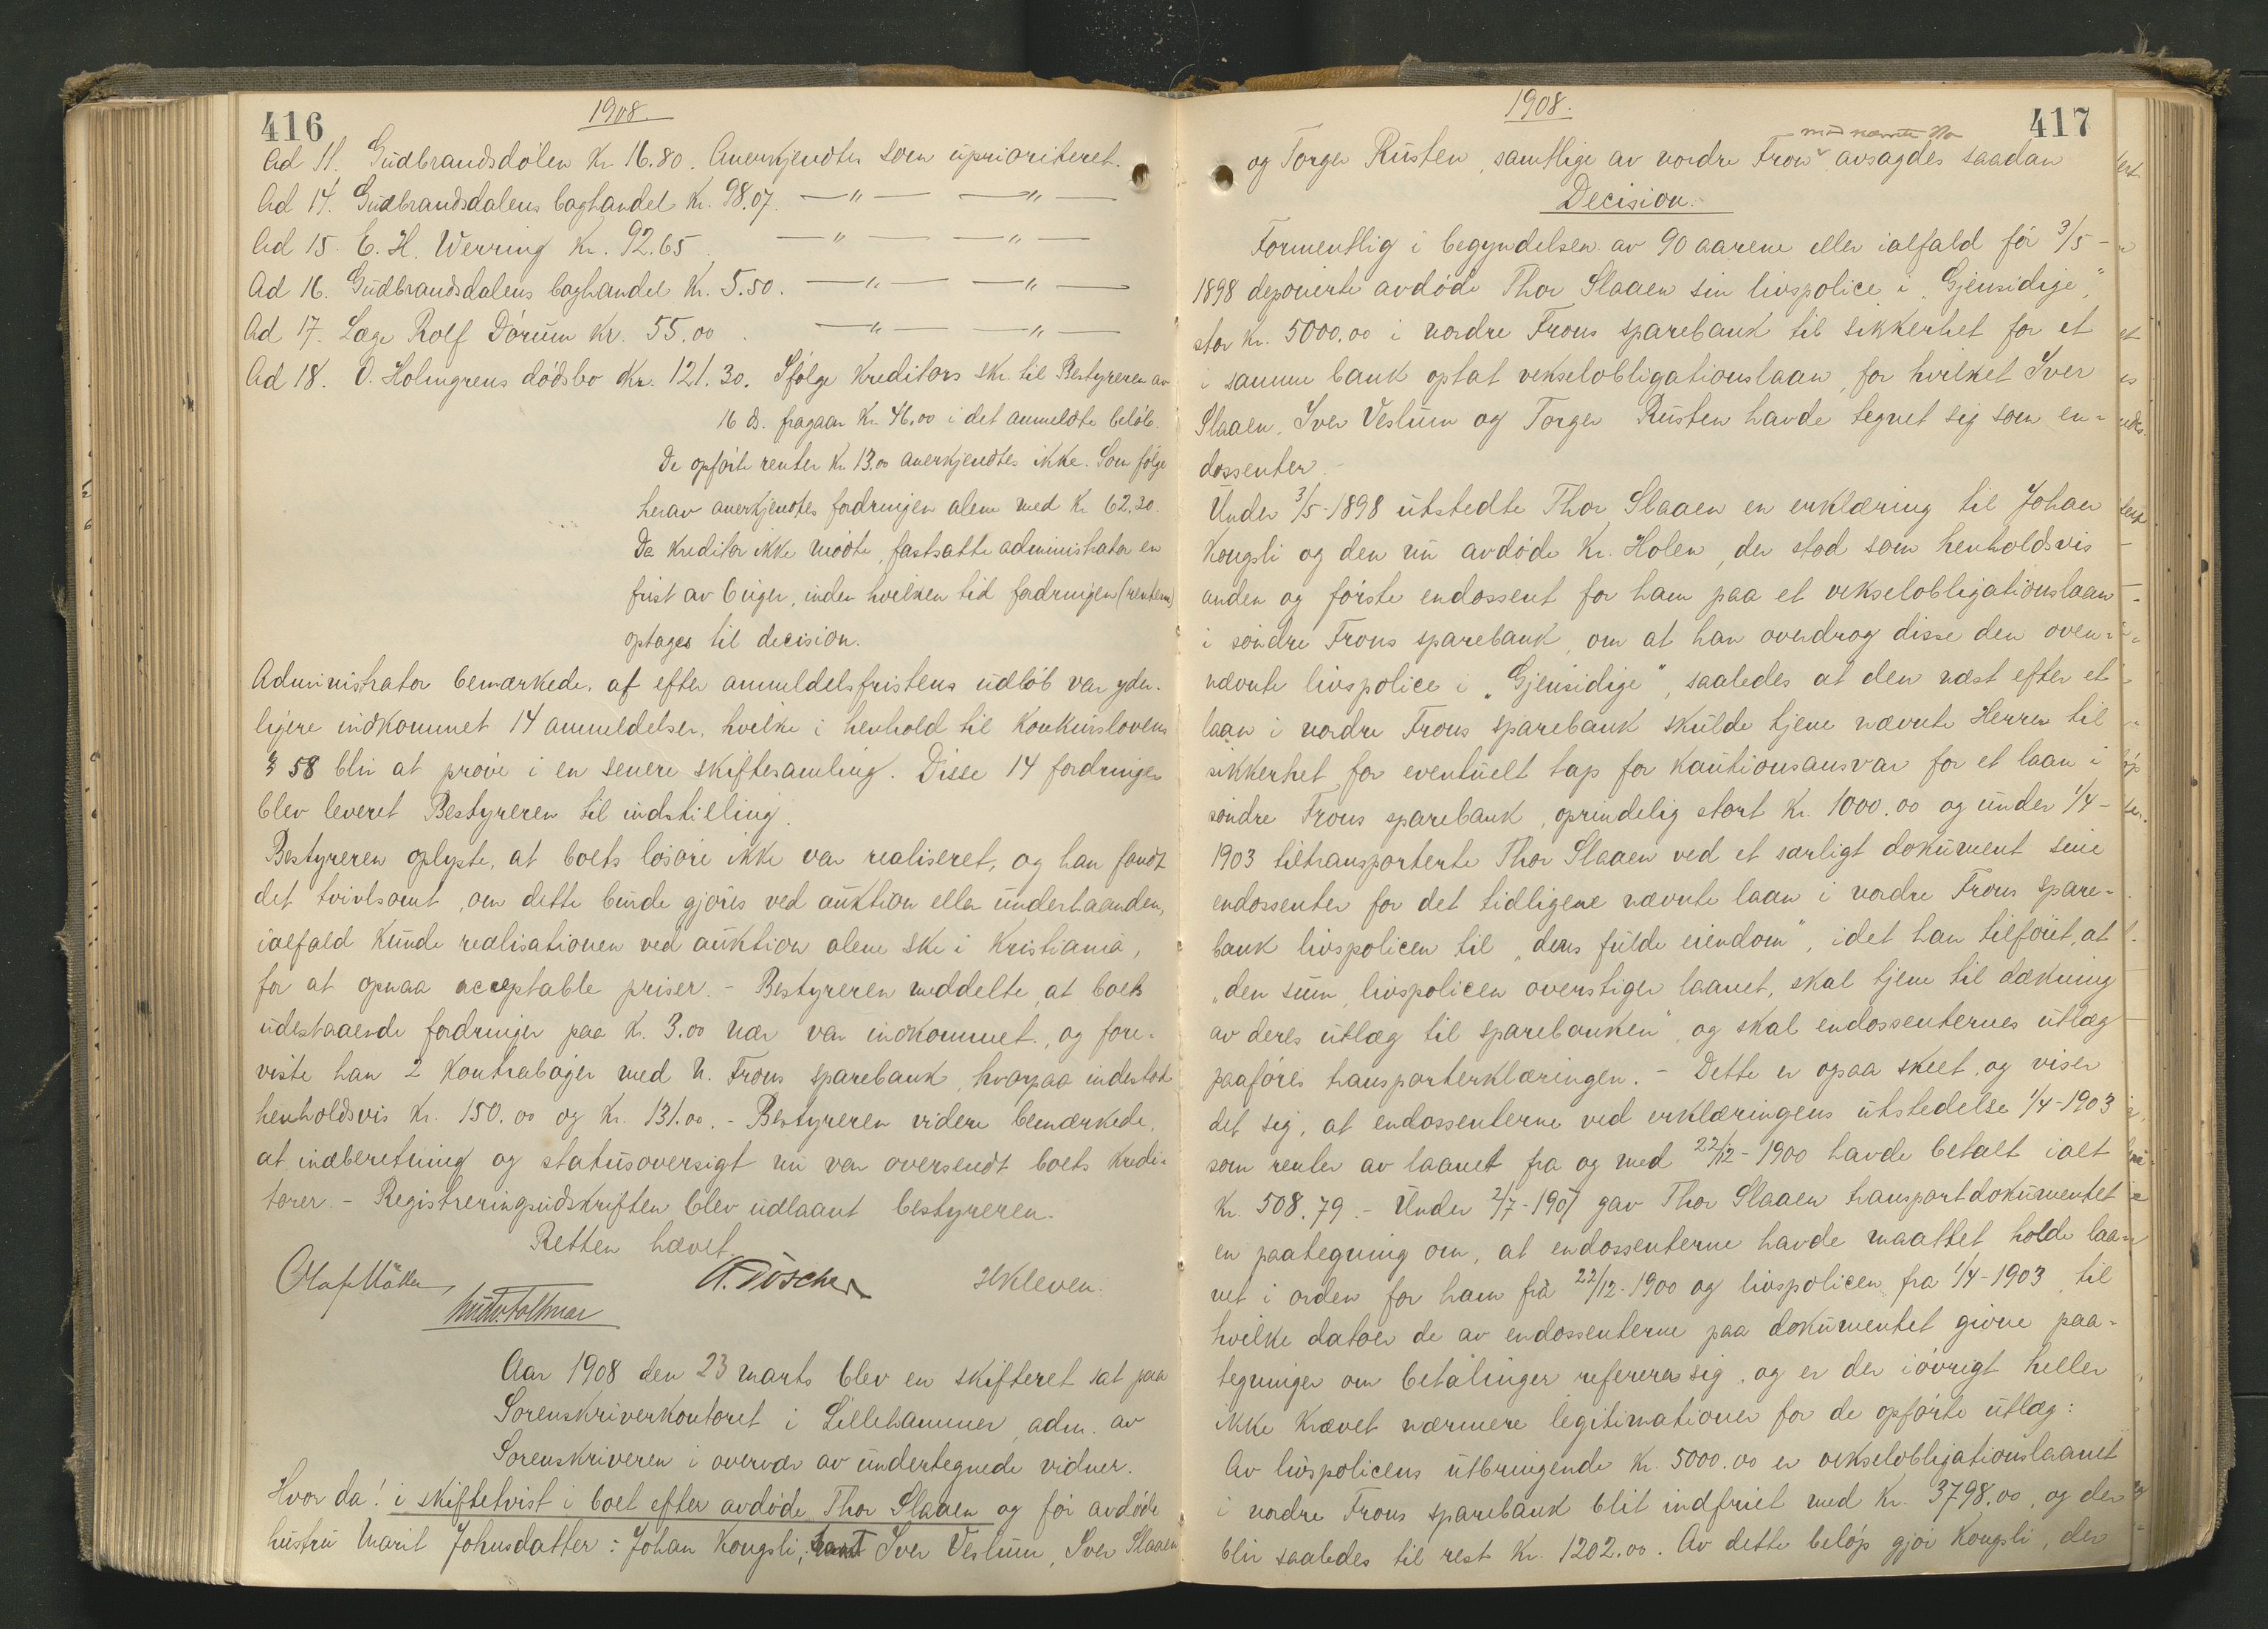 416
1908.
Ad 11. Gudbrandsdølen Kr. 16.80. Anerkjendtes som uprioriteret.
Ad 14. Gudbrandsdalens boghandel Kr. 98.07. — " — — " —
Ad 15. E. H. Werring Kr. 92.65 — " — — " —
Ad 16. Gudbrandsdalens boghandel Kr. 5.50. — " — — " —
Ad 17. Læge Rolf Dørum Kr. 55.00 — " — — " —
Ad 18. O. Holmgrens dødsbo Kr. 121.30. Ifølge Kreditors skr. til Bestyreren av
16 ds. fragaar Kr. 46.00 i det anmeldte beløb.
De opførte renter Kr 13.00 anerkjendtes ikke. Som følge
herav anerkjendtes fordringen alene med Kr 62.30.
Da Kreditor ikke mødte, fastsatte administrator en
frist av 6 uger, inden hvilken tid fordringen (renterne)
optages til decision.
Administrator bemærkede, at efter anmeldelsfristens udløb var yder-
ligere indkommet 14 anmeldelser, hvilke i henhold til Konkurslovens
§ 58 blir at prøve i en senere skiftesamling. Disse 14 fordringer
blev leveret Bestyreren til indstilling.
Bestyreren oplyste, at boets løsøre ikke var realiseret, og han fandt
det tvivlsomt, om dette burde gjøres ved auktion eller underhaanden,
ialfald kunde realisationen ved auktion alene ske i Kristiania,
for at opnaa acceptable priser. - Bestyreren meddelte, at boets
udestaaende fordringer paa K. 3.00 nær var indkommet, og fore-
viste han 2 Kontrabøger med N. Frons sparebank, hvorpaa indestod
henholdsvis Kr. 150.00 og Kr. 131.00. - Bestyreren videre bemærkede,
at indberetning og statusoversigt nu var oversendt boets Kredi-
torer. - Registreringsudskriften blev udlaant bestyreren.
Retten hævet.
HKleven.
Aar 1908 den 23 marts blev en skifteret sat paa
Sorenskriverkontoret i Lillehammer, adm. av
Sorenskriveren i overvær av undertegnede vidner.
Hvor da! i skiftetvist i boet efter avdøde Thor Slaaen og før avdøde
hustru Marit Johnsdatter: Johan Kongsli, Iver Veslum, Iver Slaaen
1908.
417
og Torger Rusten, samtlige av nordre Fron avsagdes saadan
Decision.
Formentlig i begyndelsen av 90 aarene eller ialfald før 3/5 -
1898 deponerte avdøde Thor Slaaen sin livspolice i „Gjensidige",
stor Kr. 5000.00 i nordre Frons sparebank til sikkerhet for et
i samme bank optat vekselobligationslaan, for hvilket Iver
Slaaen, Iver Veslum og Torger Rusten havde tegnet sig som en-
dossenter.
Under 3/5-1898 utstedte Thor Slaaen en erklæring til Johan
Kongsli og den nu avdøde Kr. Holen, der stod som henholdsvis
anden og første endossent for ham paa et vekselobligationslaan
i søndre Frons sparebank, om at han overdrog disse den oven-
nævnte livspolice i „Gjensidige", saaledes at den næst efter et
laan i nordre Frons sparebank skulde tjene nævnte Herrer til
sikkerhet for eventuelt tap for kautionsansvar for et laan i
søndre Frons sparebank, oprindelig stort Kr. 1000.00 og under 1/4 -
1903 tiltransporterte Thor Slaaen ved et særligt dokument sine
endossenter for det tidligere nævnte laan i nordre Frons spare-
bank livspolicen til „deres fulde eiendom", idet han tilføiet, at
„den sum, livspolicen overstiger laanet, skal tjene til dækning
av deres utlæg til sparebanken" og skal endossenternes utlæg
paaføres transporterklæringen. - Dette er ogsaa skeet, og viser
det sig, at endossenterne ved erklæringens utstedelse 1/4-1903
som renter av laanet fra og med 22/12-1900 havde betalt ialt
Kr. 508.79. - Under 2/7-1907 gav Thor Slaaen transportdokumentet
en paategning om, at endossenterne havde maattet holde laa-
net i orden for ham fra 22/12-1900 og livspolicen fra 1/4-1903, til
hvilke datoer de av endossenterne paa dokumentet givne paa-
tegninger om betalinger referere sig, og er der iøvrigt heller
ikke krævet nærmere legitimationer for de opførte utlæg:
Av livspolicens utbringende Kr. 5000.00 er vekselobligationslaanet
i nordre Frons sparebank blit indfriet med Kr. 3798.00, og der
blir saaledes til rest Kr. 1202.00. Av dette beløp gjør Kongsli, der